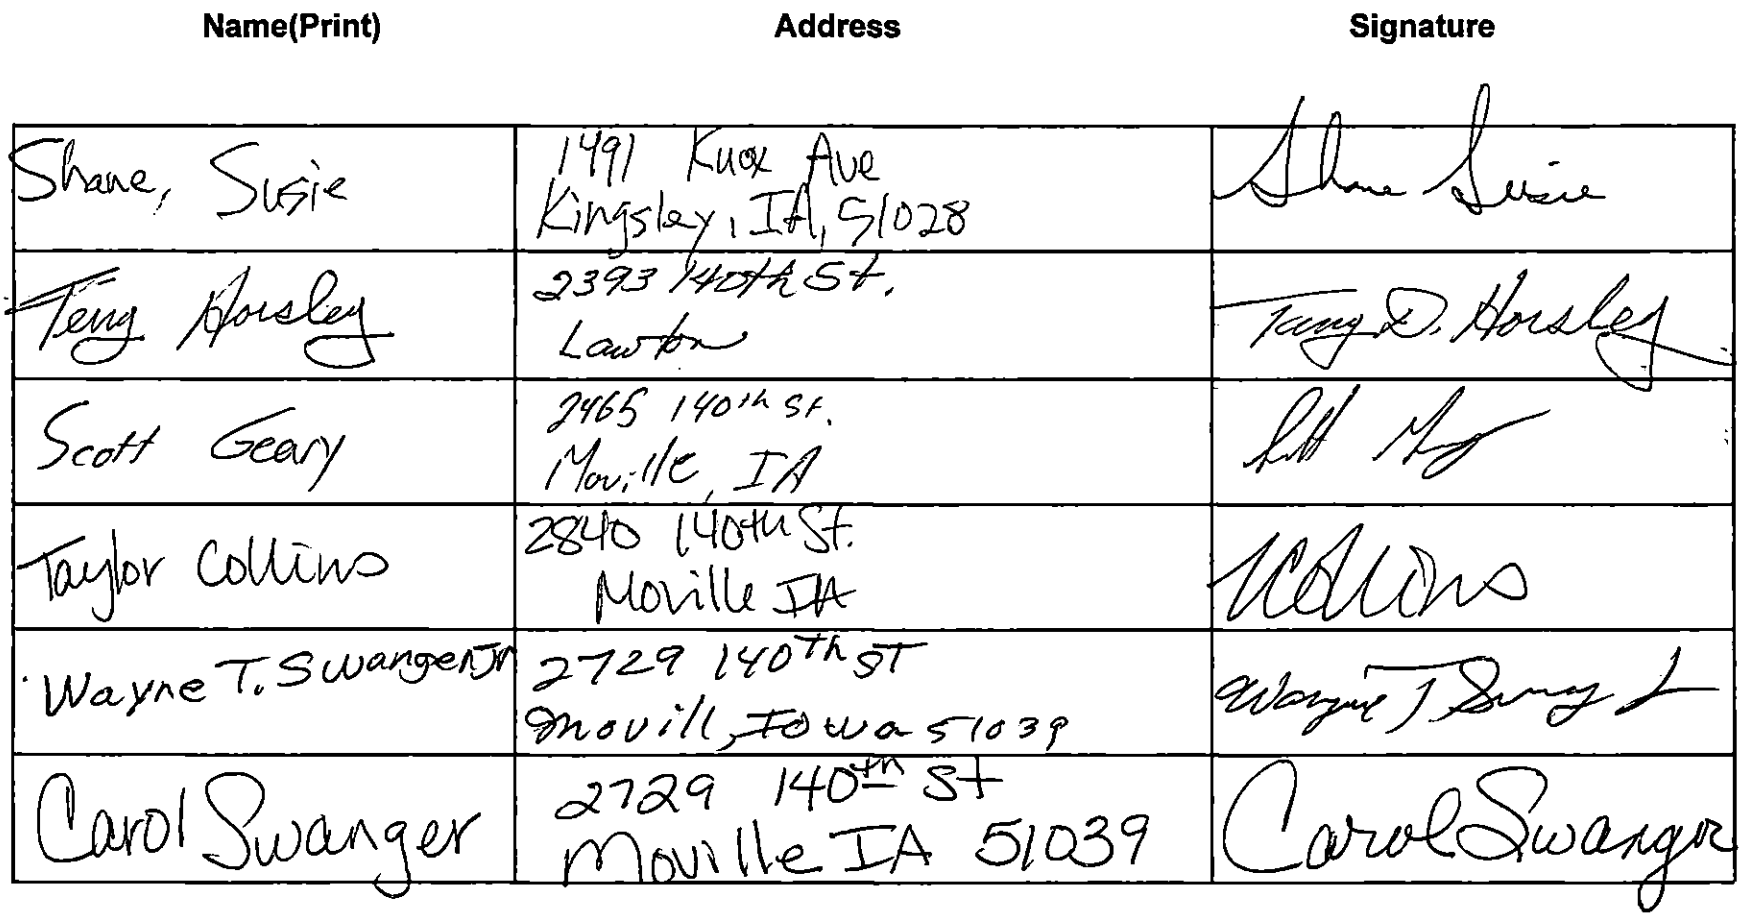 Name(Print) Address Signature
Shane, Susie
1491 Knox Ave
Kingsley, IA, 51028
Shane Susie
Terry Horsley
2393 140th St.
Lawton
Terry D. Horsley
Scott Geary
2465 140th St.
Moville, IA
Taylor Collins
2840 140th St.
Moville IA
Collins
Wayne T. Swanger Jr
2729 140Th ST
Movill, Iowa 51039
Wayne T
Carol Swanger
2729 140th St
Moville IA 51039
Carol Swanger